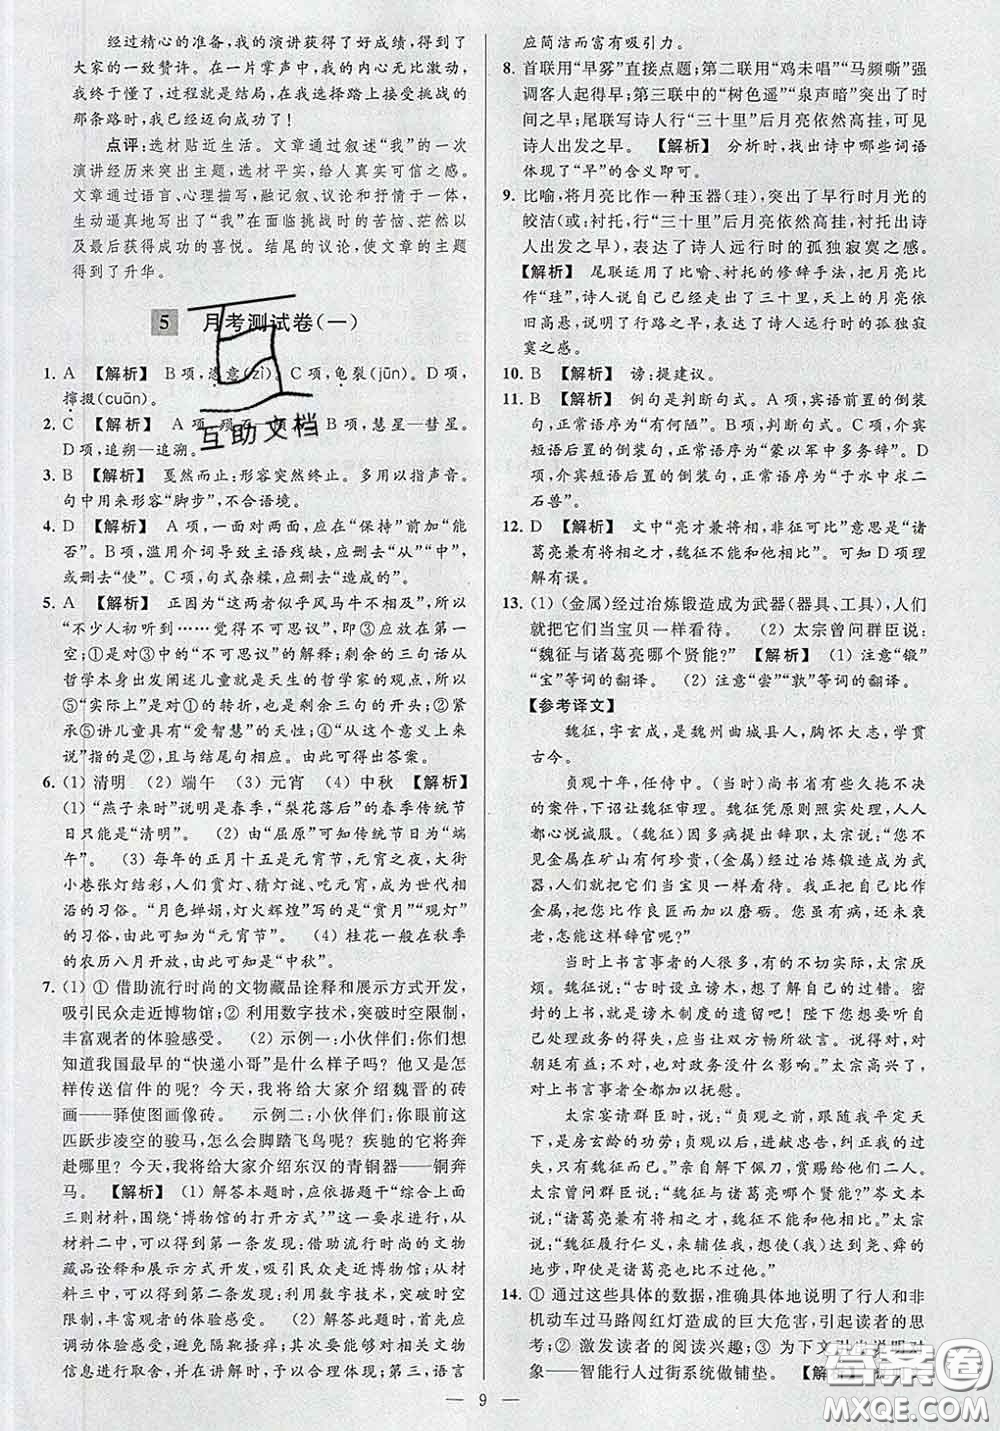 经过精心的准备,我的演讲获得了好成绩,得到了
大家的一致赞许。在一片掌声中,我的内心无比激动,
我终于懂了,过程就是结局,在我选择踏上接受挑战的
那条路时,我已经迈向成功了!
点评:选材贴近生活。文章通过叙述“我”的一次
演讲经历来突出主题,选材平实,给人真实可信之感。
文章通过语言、心理描写,融记叙、议论和抒情于一体,
生动逼真地写出了“我”在面临挑战时的苦恼、茫然以
及最后获得成功的喜悦。结尾的议论,使文章的主题
得到了升华。
5 月考测试卷(一)
1. A 【解析】 B项,恣意(zì)。C项,龟裂(jūn)。D项,
撺掇(cuān)。
2. C 【解析】 A项,
B项,慧星—彗星。
D项,追朔—追溯。
3. B 【解析】 戛然而止:形容突然终止。多用以指声音。
句中用来形容“脚步”,不合语境。
4. D 【解析】 A项,一面对两面,应在“保持”前加“能
否”。B项,滥用介词导致主语残缺,应删去“从”“中”,
或删去“使”。C项,句式杂糅,应删去“造成的”。
5. A 【解析】 正因为“这两者似乎风马牛不相及”,所以
“不少人初听到……觉得不可思议”,即③应放在第一
空;①是对③中的“不可思议”的解释;剩余的三句话从
哲学本身出发阐述儿童就是天生的哲学家的观点,所以
⑤“实际上”是对①的转折,也是剩余三句的开头;②紧
承⑤讲儿童具有“爱智慧”的天性;④“从这个意义上来
说”指的是②,且与结尾句相应。由此可得出答案。
6. (1) 清明 (2) 端午 (3) 元宵 (4) 中秋 【解析】
(1) “燕子来时”说明是春季,“梨花落后”的春季传统节
日只能是“清明”。 (2) 由“屈原”可知传统节日为“端
午”。 (3) 每年的正月十五是元宵节,元宵之夜,大街
小巷张灯结彩,人们赏灯、猜灯谜、吃元宵,成为世代相
沿的习俗。“月色婵娟,灯火辉煌”写的是“赏月”“观灯”
的习俗,由此可知为“元宵节”。 (4) 桂花一般在秋季
的农历八月开放,由此可知是“中秋”。
7. (1) ① 借助流行时尚的文物藏品诠释和展示方式开发,
吸引民众走近博物馆;② 利用数字技术,突破时空限制,
丰富观者的体验感受。 (2) 示例一:小伙伴们:你们想
知道我国最早的“快递小哥”是什么样子吗?他们是怎
样传送信件的呢?今天,我将给大家介绍魏晋的砖
画——驿使图画像砖。 示例二:小伙伴们:你眼前这
匹跃步凌空的骏马,怎么会脚踏飞鸟呢?疾驰的它将奔
赴哪里?今天,我将给大家介绍东汉的青铜器——铜奔
马。 【解析】 (1) 解答本题时,应依据题干“综合上面
三则材料,围绕‘博物馆的打开方式’”这一要求进行,从
材料二中,可以得到第一条发现:借助流行时尚的文物
藏品诠释和展示方式开发,吸引民众走近博物馆;从材
料三中,可以得到第二条发现:利用数字技术,突破时空
限制,丰富观者的体验感受。 (2) 解答此题,首先应
调动体验感受,避免隔靴搔痒;其次要能够对相关文物
信息进行取舍,并在讲解时,予以合理体现;第三,语言
应简洁而富有吸引力。
8. 首联用“早雾”直接点题;第二联用“鸡未唱”“马频嘶”强
调客人起得早;第三联中的“树色遥”“泉声暗”突出行动
之早;尾联写诗人行“三十里”后月亮依然高挂,可见诗
人出发之早。 【解析】 分析时,找出诗中哪些词语
体现了“早”的含义即可。
9. 比喻,将月亮比作一种玉器(珪),突出了早行时月光的
皎洁(或:衬托,行“三十里”后月亮依然高挂,衬托出诗
人出发之早),表达了诗人远行时的孤独寂寞之感。
【解析】 尾联运用了比喻、衬托的修辞手法,把月亮比
作“珪”,诗人说自己已经走出了三十里,天上的月亮依
旧高悬,写了行路之早,表达了诗人远行时的孤独寂
寞之感。
10. B 【解析】 谤:提建议。
11. B 【解析】 例句是判断句式。A项,宾语前置的倒装
句,正常语序为“有何陋”。B项,判断句式。C项,状语
后置的倒装句,正常语序为“蒙以军中多务辞”。D项,
介宾短语后置的倒装句,正常语序为“于水中求二
石兽”。
12. D 【解析】 文中“亮才兼将相,非征可比”意思是“诸
葛亮兼有将相之才,魏征不能和他相比”。可知D项理
解有误。
13. (1) (金属)经过冶炼锻造成为武器(器具、工具),人们
就把它们当宝贝一样看待。 (2) 太宗曾问群臣说:
“魏征与诸葛亮哪个贤能?” 【解析】 (1) 注意“锻”
“宝”等词的翻译。 (2) 注意“尝”“孰”等词的翻译。
【参考译文】
魏征,字玄成,是魏州曲城县人,胸怀大志,贯通
古今。
贞观十年,任侍中。(当时)尚书省有些久拖不决
的案件,下诏让魏征审理。魏征凭原则照实处理,人人
都心悦诚服。(魏征)因多病提出辞职,太宗说:“您不
见金属在矿山有何珍贵,(金属)经过冶炼锻造成为武
器,人们就把它们当宝贝一样看待。我正把自己比作
金属,把您比作良匠而加以磨砺。您虽有病,还未衰
老,怎能这样辞官呢?”
当时上书言事者的人很多,有的不切实际,太宗厌
烦。魏征说:“古时设立谤木,想了解自己的过错。密
封的上书,就是谤木制度的遗留吧!陛下您想了解自
己处理政务的得失,应当让双方畅所欲言。说得对,对
朝廷有益;不对,与政务没什么影响。”太宗高兴了,
对上书言事者都加以抚慰。
太宗宴请群臣时,说:“贞观之前,跟随我平定天下
的,是房玄龄的功劳;贞观以后,进献忠言,纠正我的过
失,只有魏征。”亲自解下佩刀,赏赐给他们二人。
太宗曾问群臣说:“魏征与诸葛亮哪个贤能?”岑文本
说:“诸葛亮兼有将相之才,魏征不能和他相比。”太宗
说:“魏征履行仁义,来辅佐我,想使(我)达到尧、舜的
地步,即使是诸葛亮也比不过他。”
14. ① 通过这些具体的数据,准确具体地说明了行人和非
机动车过马路闯红灯造成的巨大危害,引起读者的思
考;② 激发读者的阅读兴趣;③ 为下文引出说明对
象——智能行人过街系统做铺垫。 【解析】
— 9 —
互助文档
答案圈
MXQE.COM